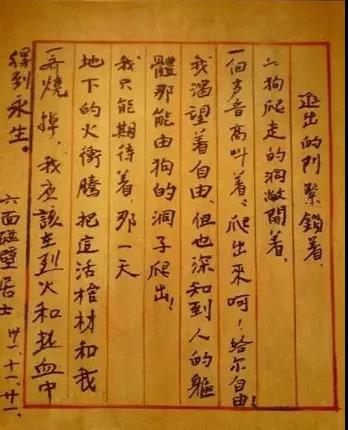 进出的門緊鎖着、
为狗爬走的洞敞開着、
一個声音高叫着、爬出來呵！給尔自由！
我渴望着自由、但也深知到人的軀
體那能由狗的洞子爬出！
我只能期待着、那一天
地下的火衝騰把這活棺材和我
一齊燒掉、我应該在烈火和热血中
得到永生。
六面碰壁居士 卅一.十一.廿一.